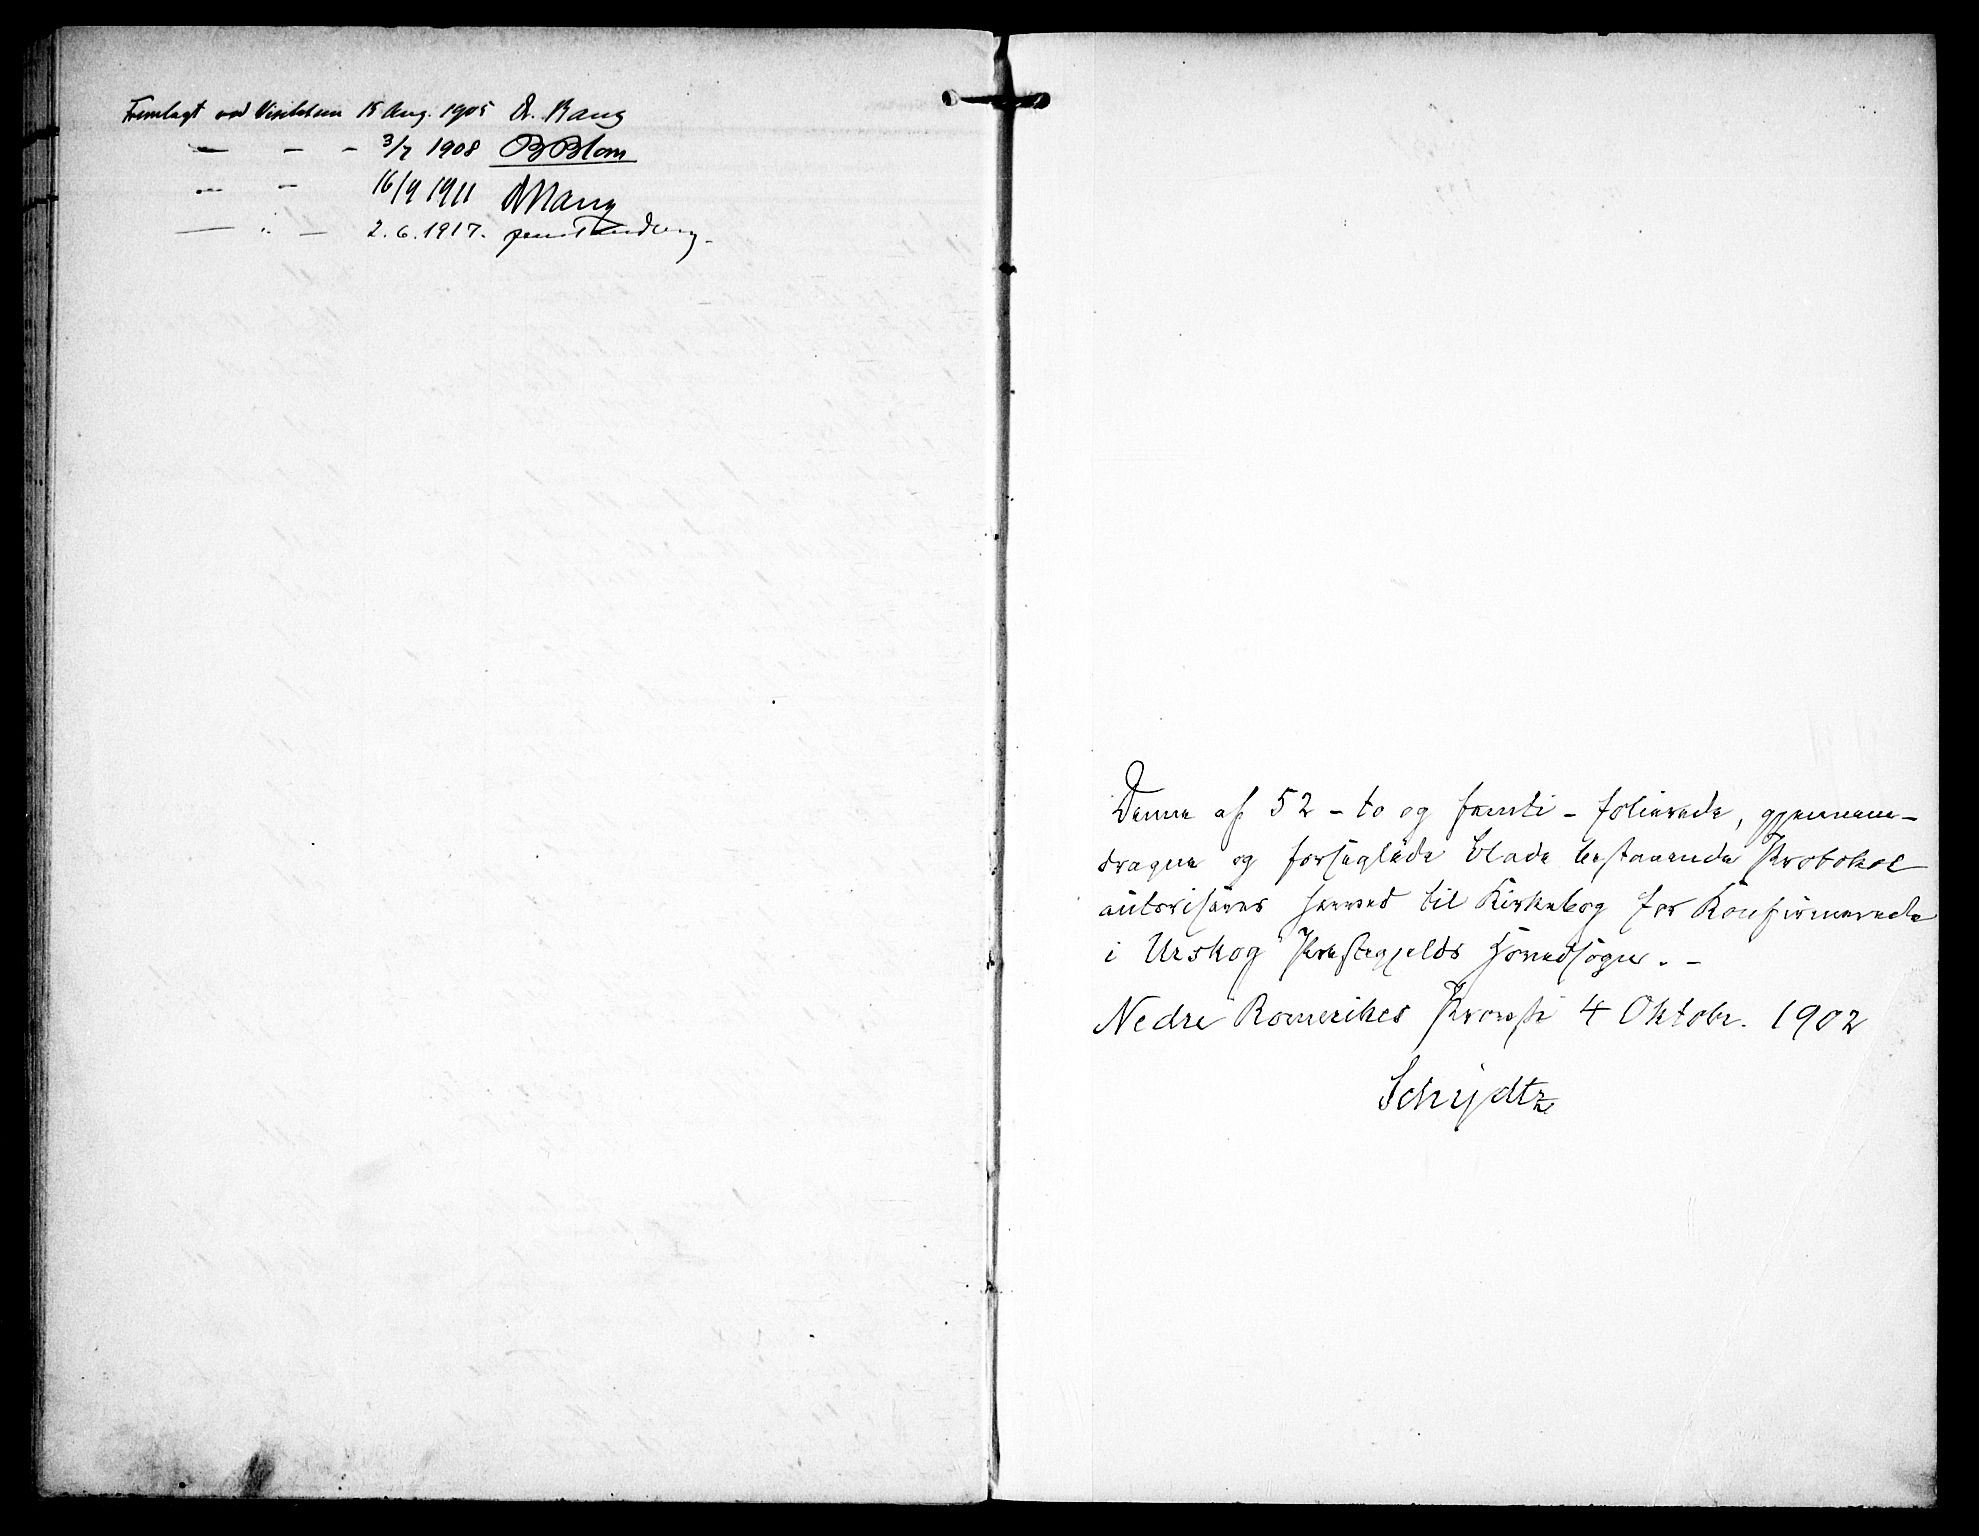 Fremlagt ved Visitatsen 15 Aug. 1905 A. Bang
— - - 3/7 1908 B Blom
- - 16/9 1911 A Bang
— " — 2.6.1917. Jens Tandberg.
Denne af 52 - to og femti - folierede, gjennem-
dragne og forseglede Blade bestaaende Protokol
autoriseres herved til Kirkebog for Konfirmerede
i Urskog Præstegjelds Hovedsogn. -
Nedre Romerikes Provsti 4 Oktobr. 1902
Schydtz